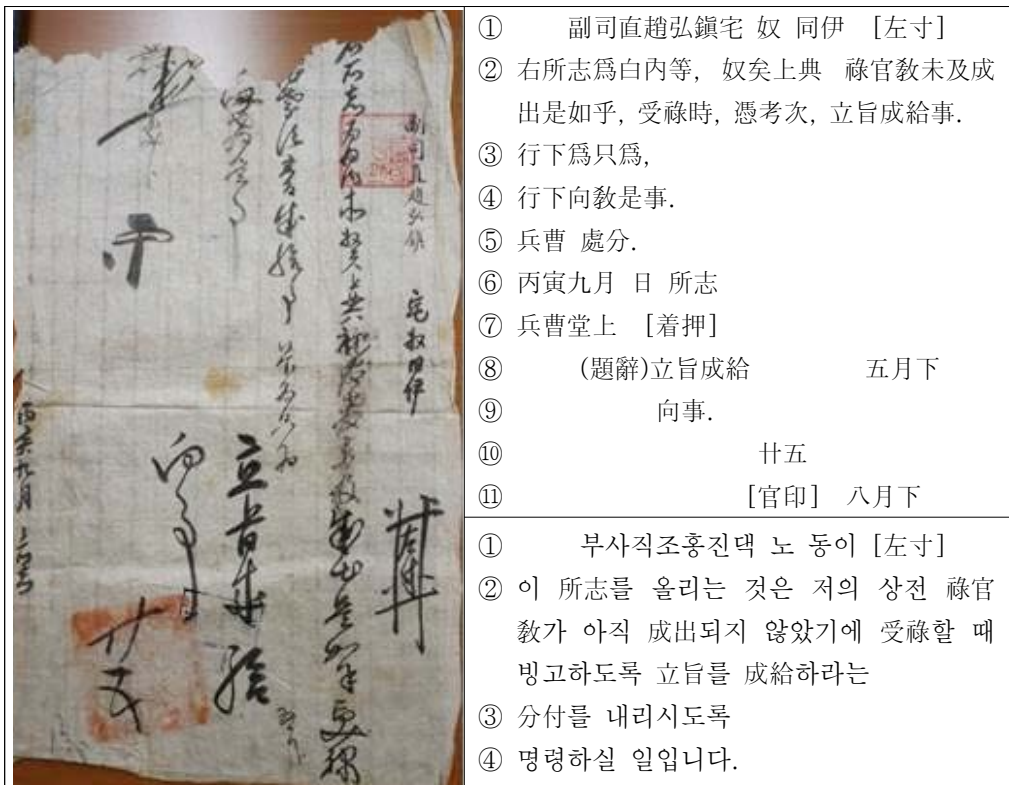 副司直趙弘鎭 宅奴同伊
立旨成給
向事
廿五
① 副司直趙弘鎭宅 奴 同伊 [左寸]
② 右所志爲白內等, 奴矣上典 祿官敎未及成
出是如乎, 受祿時, 憑考次, 立旨成給事.
③ 行下爲只爲,
④ 行下向敎是事.
⑤ 兵曹 處分.
⑥ 丙寅九月 日 所志
⑦ 兵曹堂上 [着押]
⑧ (題辭)立旨成給 五月下
⑨ 向事.
⑩ 廿五
⑪ [官印] 八月下
① 부사직조홍진댁 노 동이 [左寸]
② 이 所志를 올리는 것은 저의 상전 祿官
敎가 아직 成出되지 않았기에 受祿할 때
빙고하도록 立旨를 成給하라는
③ 分付를 내리시도록
④ 명령하실 일입니다.